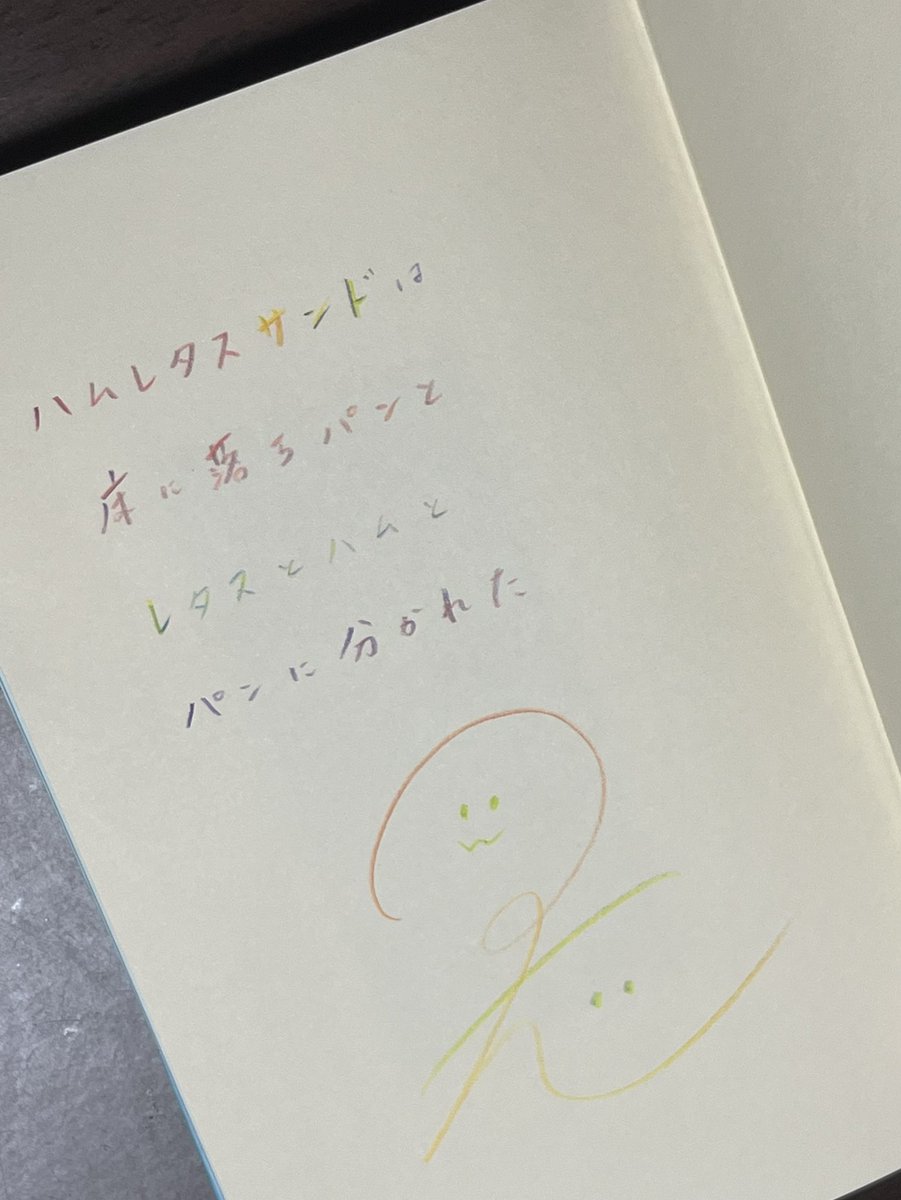 ハムレタスサンドは
床に落ちパンと
レタスとハムと
パンに分かれた